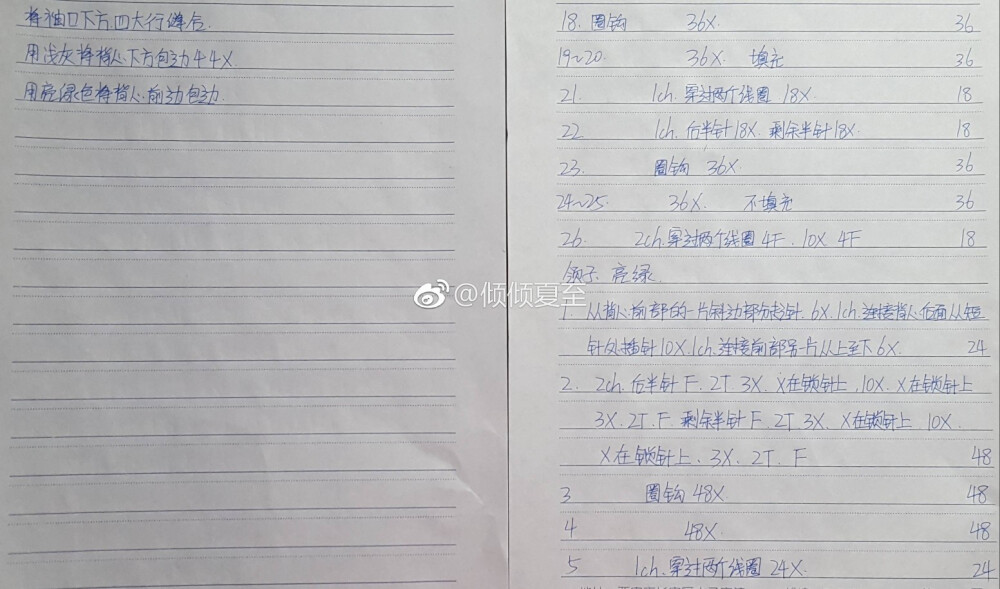 将袖口下方四大行缝合.
用浅灰将背心下方包边44X.
用亮绿色将背心前边包边.
18. 圈钩 36X. 36
19~20. 36X. 填充 36
21. 1ch. 穿过两个线圈 18X. 18
22 1ch. 后半针18X. 剩余半针18X. 18
23. 圈钩 36X. 36
24~25. 36X. 不填充 36
26. 2ch.穿过两个线圈 4F. 10X 4F 18
领子. 亮绿.
1 从背心前部的一片斜边部分起针. 6X. 1ch. 连接背心后面从短
针处插针10X. 1ch. 连接前部另一片从上至下6X. 24
2. 2ch. 后半针F. 2T 3X. X在锁针上. 10X. X在锁针上
3X. 2T. F. 剩余半针F. 2T 3X. X在锁针上. 10X.
X在锁针上. 3X. 2T. F 48
3 圈钩 48X 48
4 48X. 48
5 1ch. 穿过两个线圈 24X. 24
@倾倾夏至